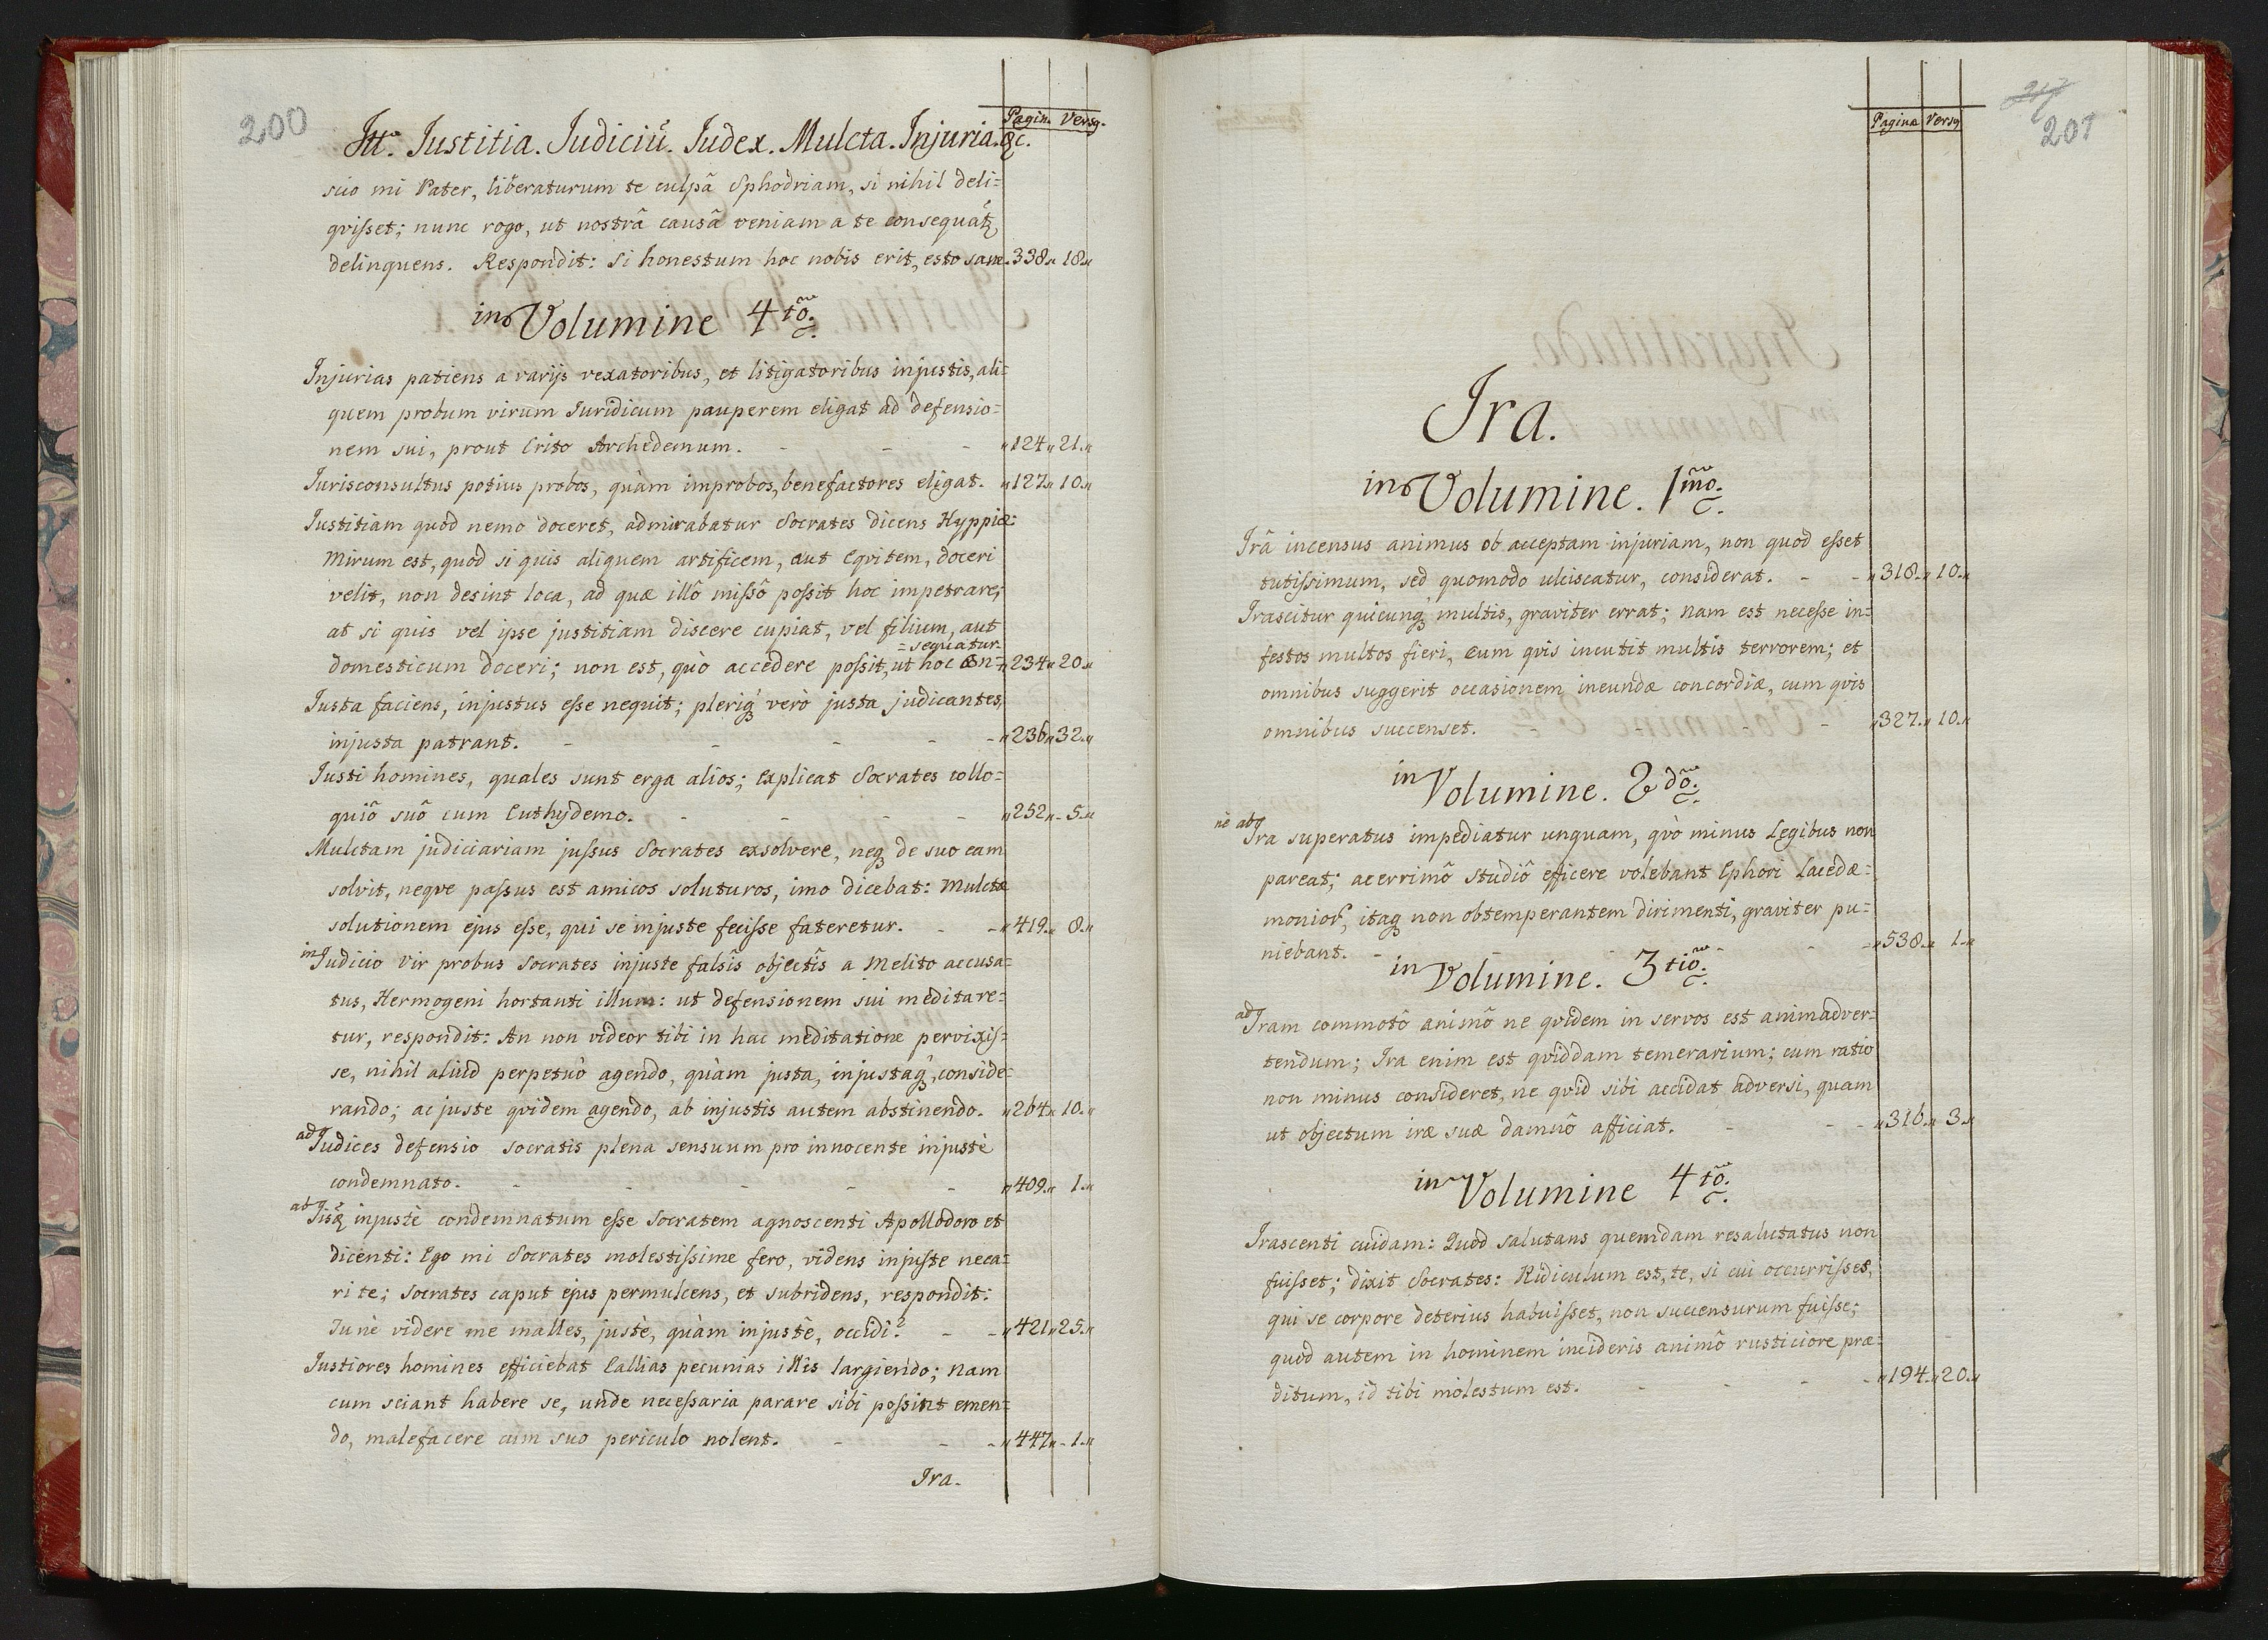 200
Pagin. Versq.
Jtt. Justitia. Judiciũ. Judex. Mulcta. Injuria. &c.
scio mi Pater, liberaturum te culpâ Sphodriam, si nihil deli=
qvisset; nunc rogo, ut nostrâ causâ veniam a te conseqvatʒ
delinquens. Respondit: Si honestum hoc nobis erit, esto sane. 338 „ 18 „
in Volumine 4to.
Injurias patiens a varijs vexatoribus, et litigatoribus injustis, ali=
quem probum virum Juridicum pauperem eligat ad defensio=
nem sui, prout Crito Archedemum. - - - „ 124 „ 21 „
Jurisconsultus potius probos, quàm improbos, benefactores eligat. „ 127 „ 10 „
Justitiam quod nemo doceret, admirabatur Socrates dicens Hyppiæ:
Mirum est, quod si quis aliquem artificem, aut Eqvitem, doceri
velit, non desint loca, ad quæ illô missô possit hoc impetrare,
at si quis vel ipse justitiam discere cupiat, vel filium, aut
=sequatur.
domesticum doceri; non est, quò accedere possit, ut hoc con= „ 234 „ 20 „
Justa faciens, injustus esse nequit; pleriqʒ verò justa judicantes,
injusta patrant. - - - - „ 236 „ 32 „
Justi homines, quales sunt erga alios; explicat Socrates collo=
quiô suô cum Euthydemo. - - - - „ 252 „ 5 „
Mulctam judiciariam jussus Socrates exsolvere, neqʒ de suo eam
solvit, neqve passus est amicos soluturos, imo dicebat: Mulctæ
solutionem ejus esse, qui se injuste fecisse fateretur. - - „ 419 „ 8 „
in Judicio Vir probus Socrates injuste falsîs objectîs a Melito accusa=
tus, Hermogeni hortanti illum: ut defensionem sui meditare=
tur, respondit: An non videor tibi in hac meditatione pervixis=
se, nihil aliud perpetuò agendo, quàm justa, injustaqʒ, conside=
rando; ac juste qvidem agendo, ab injustis autem abstinendo. „ 264 „ 10 „
ad Judices defensio Socratis plena sensuum pro innocente injustè
condemnato. - - - - - „ 409 „ 1 „
injustè condemnatum esse Socratem agnoscenti Apollodoro et
dicenti: Ego mi Socrates molestissime fero, videns injuste neca=
ri te; Socrates caput ejus permulcens, et subridens, respondit:
Tu nè videre me malles, justè, quàm injustè, occidi? - - „ 421 „ 25 „
Justiores homines efficiebat Callias pecunias illis largiendo; nam
cum sciant habere se, unde necessaria parare sibi possint emen=
do, malefacere cùm suo periculo nolent. - - - „ 447 „ 1 „
Ira.
217
201
Paginæ Versq
Ira.
in Volumine. 1mo.
Irâ incensus animus ob acceptam injuriam, non quod esset
tutissimum, sed quomodo ulciscatur, considerat. - - „ 318 „ 10 „
Irascitur quicunqʒ multis, graviter errat; nam est necesse in=
festos multos fieri, cum qvis incutit multis terrorem; et
omnibus suggerit occasionem ineundæ concordiæ, cum qvis
omnibus succenset. - - - - „ 327 „ 10 „
in Volumine. 2do.
nè ab Ira superatus impediatur unquam, qvò minus Legibus non
pareat; acerrimô studiô efficere volebant Ephori Lacedæ=
monior., itaqʒ non obtemperantem dirimenti, graviter pu=
niebant. - - - - - „ 538 „ 1 „
in Volumine. 3tio.
ad Iram commotô animô ne qvidem in servos est animadver=
tendum; Ira enim est qviddam temerarium; cum ratio
non minus consideret, ne qvid sibi accidat adversi, quam
ut objectum iræ suæ damnô afficiat. - - - „ 316 „ 3 „
in Volumine 4to.
Irascenti cuidam: Quod salutans quemdam resalutatus non
fuisset; dixit Socrates: Ridiculum est, te, si cui occurrisses,
qui se corpore deterius habuisset, non succensurum fuisse;
quod autem in hominem incideris animô rusticiore præ=
ditum, id tibi molestum est. - - - - „ 194 „ 20 „